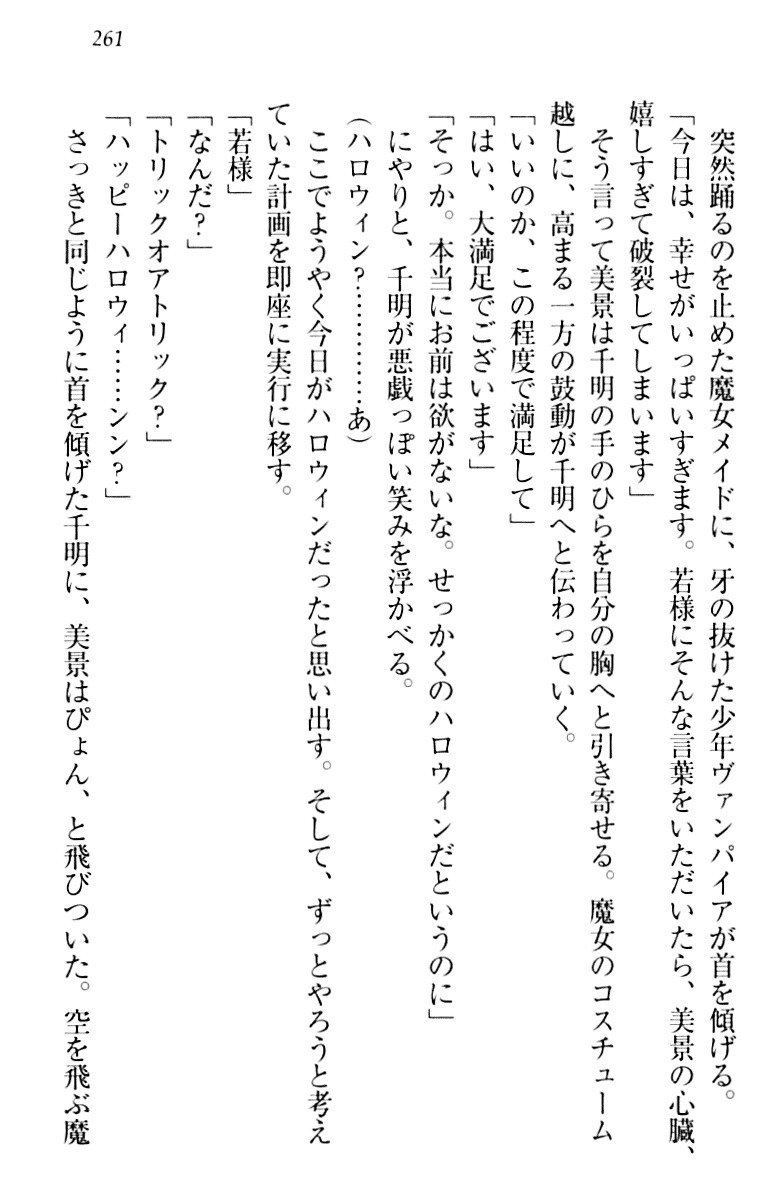 261
突然踊るのを止めた魔女メイドに、牙の抜けた少年ヴァンパイアが首を傾げる。
「今日は、幸せがいっぱいすぎます。若様にそんな言葉をいただいたら、美景の心臓、
嬉しすぎて破裂してしまいます」
そう言って美景は千明の手のひらを自分の胸へと引き寄せる。魔女のコスチューム
越しに、高まる一方の鼓動が千明へと伝わっていく。
「いいのか、この程度で満足して」
「はい、大満足でございます」
「そっか。本当にお前は欲がないな。せっかくのハロウィンだというのに」
にやりと、千明が悪戯っぽい笑みを浮かべる。
（ハロウィン？…………あ）
ここでようやく今日がハロウィンだったと思い出す。そして、ずっとやろうと考え
ていた計画を即座に実行に移す。
「若様」
「なんだ？」
「トリックオアトリック？」
「ハッピーハロウィ……ンン？」
さっきと同じように首を傾げた千明に、美景はぴょん、と飛びついた。空を飛ぶ魔